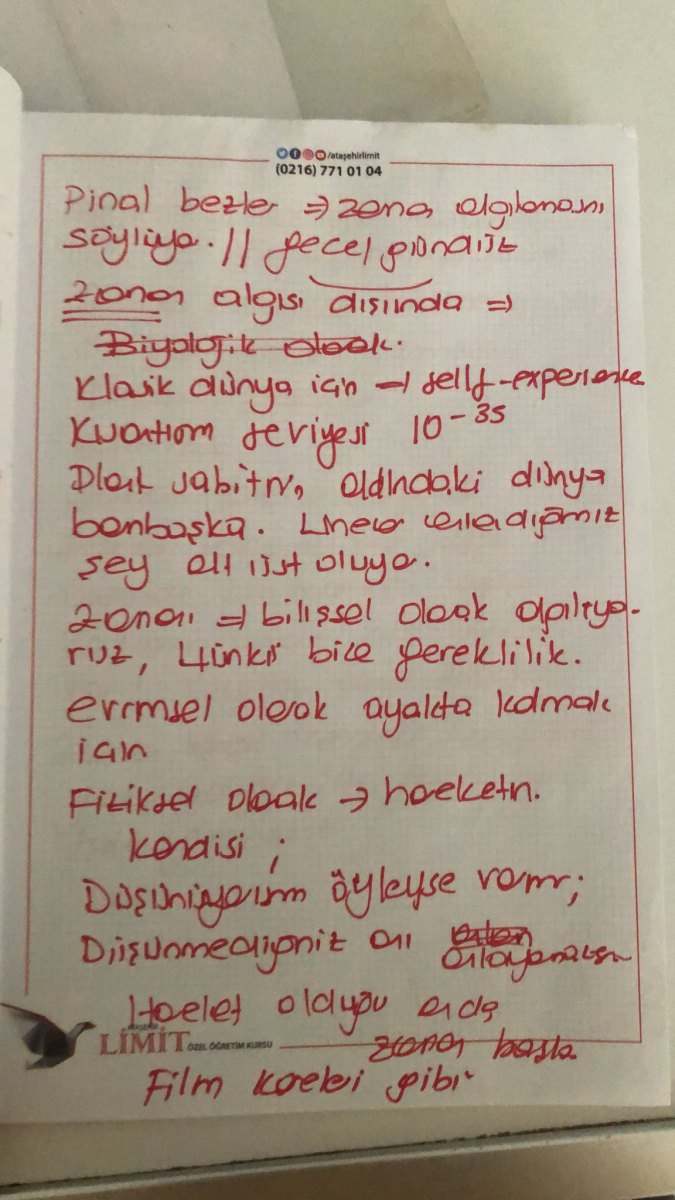 /ataşehirlimit
(0216) 771 01 04
Pinal bezler => zaman algılanasnı
söylüyo. // gece/gündüz
zaman algısı dışıında =>
Biyolojik olarak.
Klasik dünya için → self-experience
Kuantom seviyesi 10-35
Plank sabitn, altındaki dünya
bambaşka. Lineer dediğimiz
şey alt üst oluyo.
zamanı => bilişsel olarak algılıyo-
ruz, çünkü bize gereklilik.
evrimsel olarak ayakta kalmak
için
Fiziksel olarak → hareketn.
kendisi ;
Düşünüyorum öyleyse varım;
Düşünmediğiniz anı anlayamazsın
Hareket olduğu anda
zaman başla
ATAŞEHİR LİMİT ÖZEL ÖĞRETİM KURSU
Film kareleri gibi